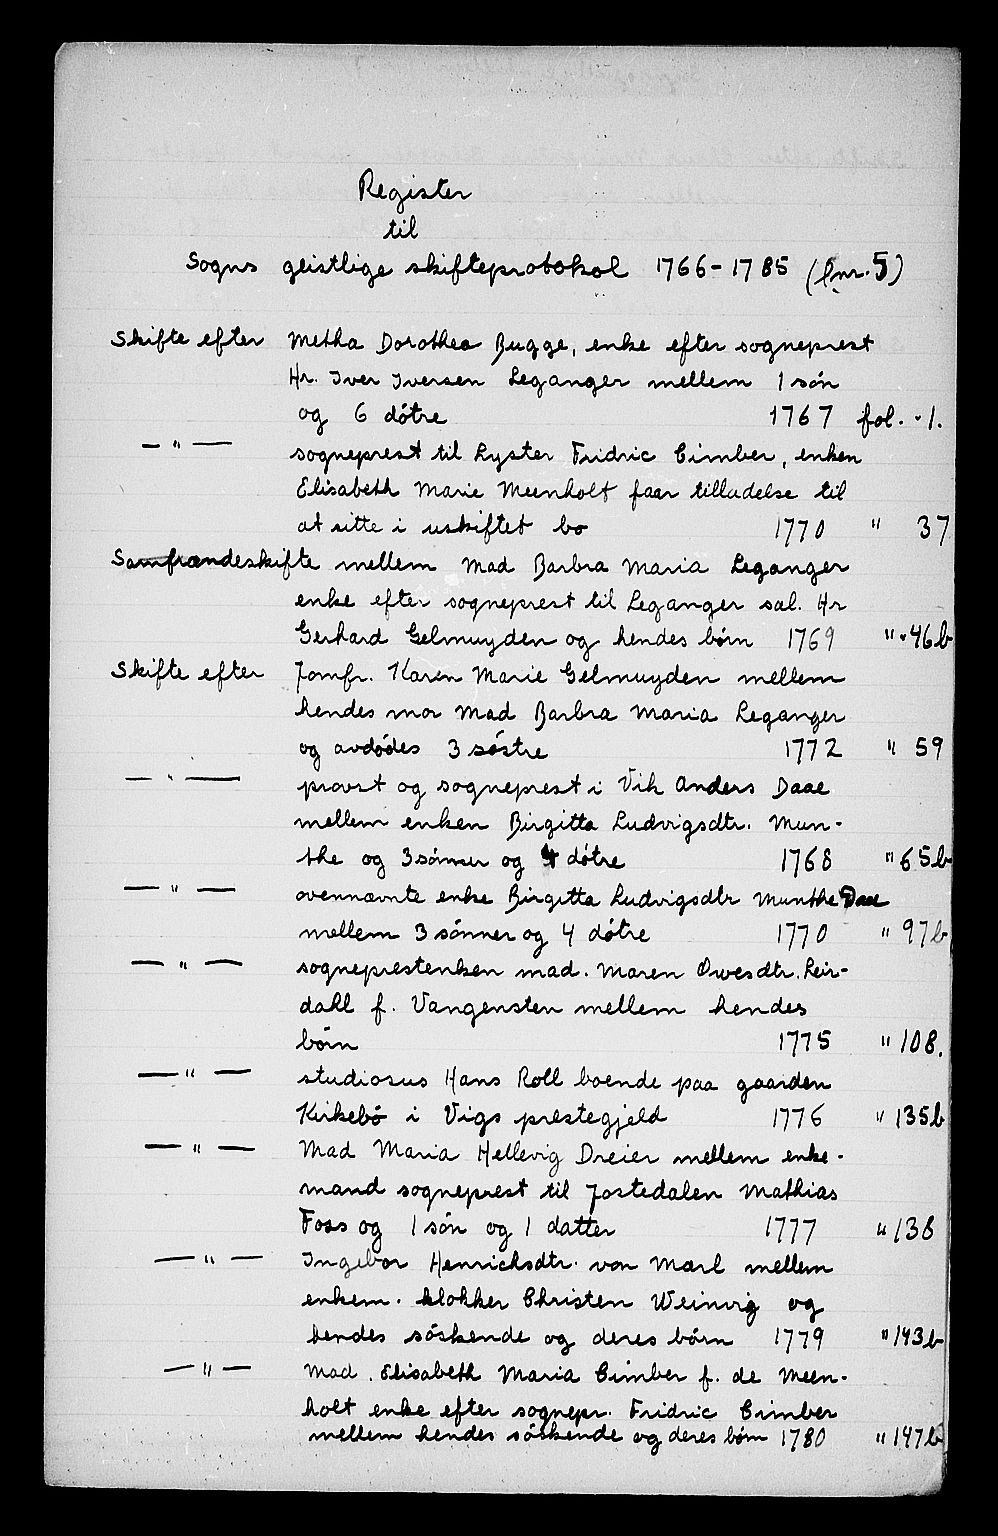 Register
til
Sogns geistlige skifteprotokol 1766-1785 (lnr. 5)
Skifte efter Metha Dorothea Bugge, enke efter sogneprest
Hr. Iver Iversen Leganger mellem 1 søn
og 6 døtre 1767 fol. - 1.
— " — sogneprest til Lyster Fridric Cimber, enken
Elisabeth Marie Meenholt faar tilladelse til
at sitte i uskiftet bo 1770 " 37
Samfrændeskifte mellem Mad Barbra Maria Leganger
enke efter sogneprest til Leganger sal. Hr
Gerhard Gelmuyden og hendes børn 1769 " 46b
Skifte efter Jomfr. Karen Marie Gelmuyden mellem
hendes mor Mad Barbra Maria Leganger
og avdødes 3 søstre 1772 " 59
— " — provst og sogneprest i Vik Anders Daae
mellem enken Birgitta Ludvigsdtr. Mun-
the og 3 sønner og 4 døtre 1768 " 65b
— " — ovennævnte enke Birgitta Ludvigsdtr Munthe Daae
mellem 3 sønner og 4 døtre 1770 " 97b
— " — sogneprestenken mad. Maren Owesdtr. Leir-
dahl f. Vangensten mellem hendes
børn 1775 " 108.
— " — studiosus Hans Roll boende paa gaarden
Kirkebø i Vigs prestegjeld 1776 " 135b
— " — Mad Maria Hellevig Dreier mellem enke-
mand sogneprest til Jostedalen Mathias
Foss og 1 søn og 1 datter 1777 " 138
— " — Ingebor Henrichsdtr. von Marl mellem
enkem. klokker Christen Weinvig og
hendes søskende og deres børn 1779 " 143b
— " — Mad. Elisabeth Maria Cimber f. de Meen-
holt enke efter sognepr. Fridric Cimber
mellem hendes søskende og deres børn 1780 " 147b